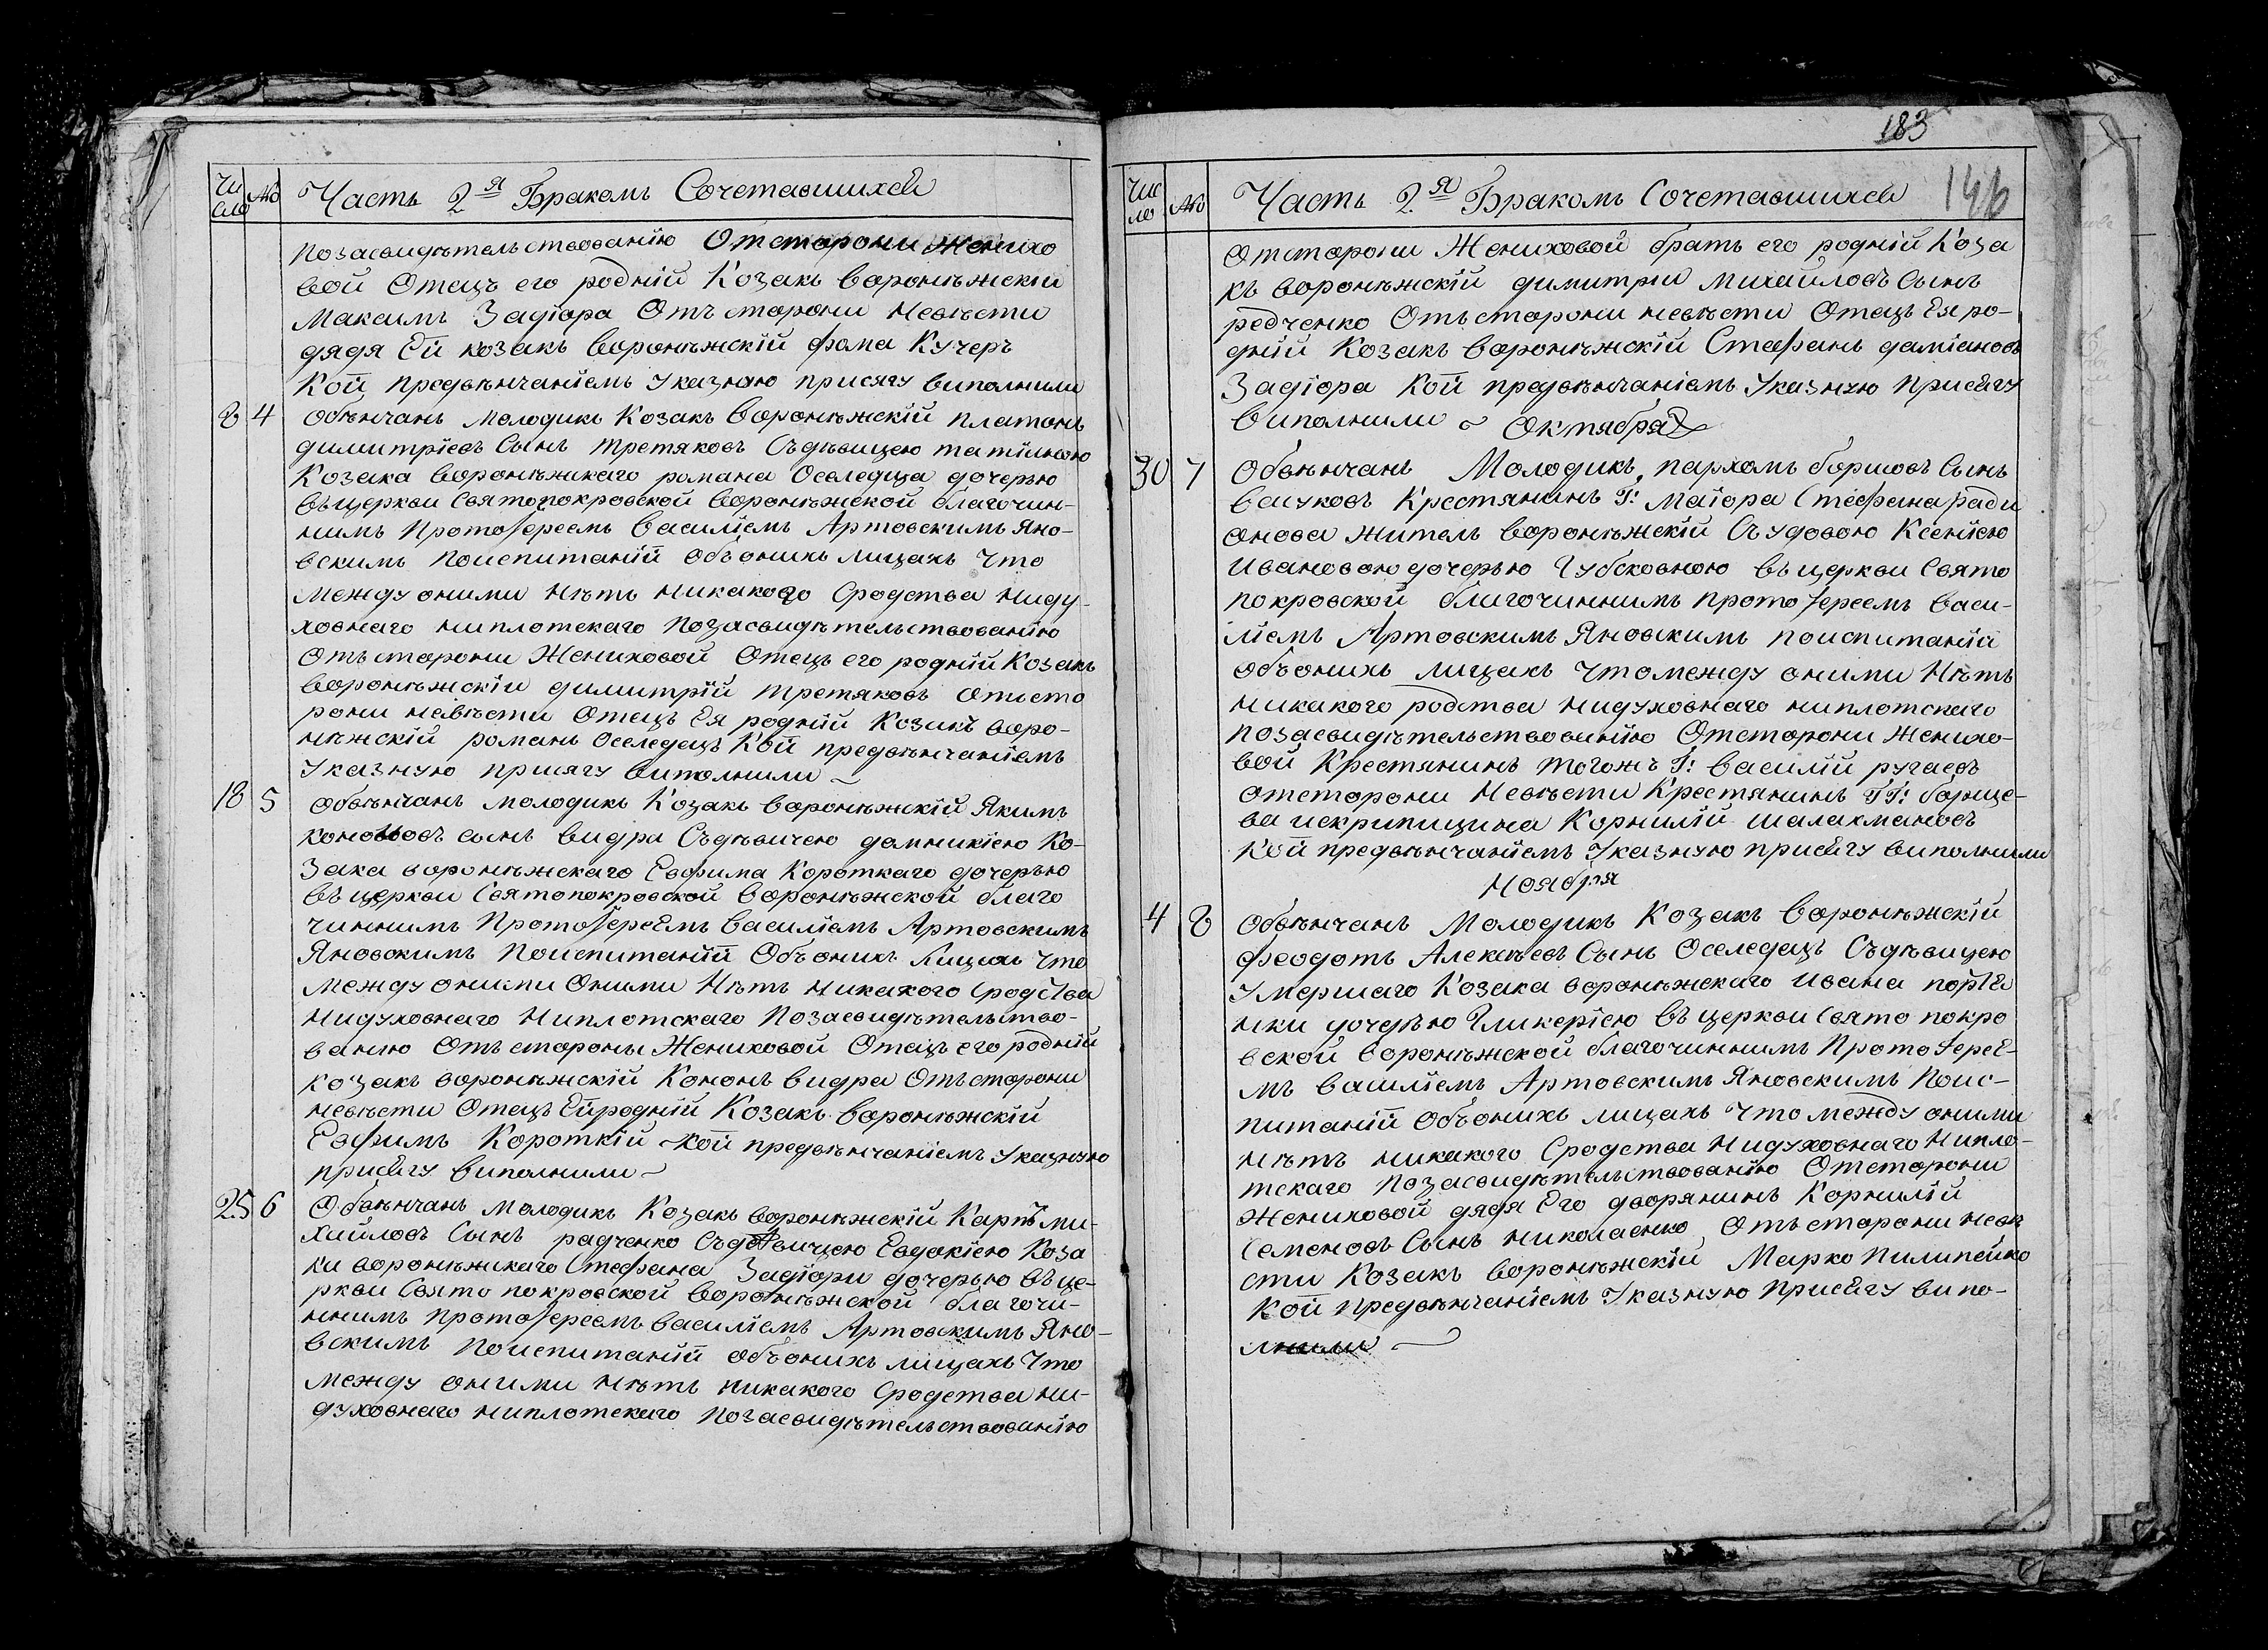 Чи
сло
№
Часть 2я Бракомъ Сочетавшихся
позасвидѣтельствованїю Отсторони Женихо
вой Отецъ его роднїй Козакъ воронѣжскїй
Максимъ Задїора Отъ сторони Невѣсти
дядя Ей козакъ воронѣжскїй фома Кучеръ
Кой предвѣнчанїемъ Указную присягу виполнили
8 4 Обвѣнчанъ молодикъ Козакъ воронѣжскїй платонъ
димитрїевъ Сынъ третяковъ Съдѣвицею татїяною
Козака воронѣжкаго романа Оселедца дочерью
въцеркви Святопокровской воронѣжской благочин-
нимъ Протоїереемъ василїемъ Артовскимъ Яно-
вскимъ Поиспитанїй объонихъ лицахъ Что
между оними нѣтъ никакого Сродства ниду-
ховнаго ниплотскаго позасвидѣтельствованїю
Отъстрони Жениховой Отецъ его роднїй Козакъ
воронѣжскїй димитрїй третяковъ отъсто
рони невѣсти Отецъ Ея роднїй Козакъ воро-
нѣжскїй романъ Оселедецъ Кой предвѣнчанїемъ
Указную присягу виполнили
18 5 обвѣнчанъ молодикъ Козакъ воронѣжскїй Якимъ
кононовъ сынъ видра Съдѣвичею домникїею Ко-
зака воронѣжскаго Евфима Короткаго дочерью
въцеркви Святопокровской воронѣжской благо
чиннимъ Протоїереемъ василїемъ Артовскимъ
Яновскимъ Поиспитанїй Объонихъ Лицахъ Что
между оними Оними Нѣтъ никакого Сродства
нидуховнаго ниплотскаго Позасвидѣтельство-
ванїю Отъ стороны Жениховой Отецъ его роднїй
козакъ воронѣжскїй Кононъ видра Отъсторони
невѣсти Отецъ Ейроднїй Козакъ воронѣжскїй
Евфимъ Короткїй кой предвѣнчанїемъ Указную
присягу виполнили
25 6 Обвѣнчанъ молодикъ Козакъ воронѣжскїй Карпъ ми-
хайловъ Сынъ радченко Съдѣвицею Евдокїею Коза
ка воронѣжкаго Стефана Задїори дочерью въце-
ркви Свято покровской воронѣжской благочи-
ннимъ протоїереемъ василїемъ Артовскимъ Яно-
вскимъ Поиспитанїй объонихъ лицахъ Что
между оними нѣтъ никакого Сродства ни-
духовнаго ниплотскаго позасвидѣтельствованїю
183
Чис
ло
№
Часть 2я Бракомъ Сочетавшихся
146
Отсторони Жениховой братъ его роднїй Коза
къ воронѣжскїй димитрїй михайловъ Сынъ
редченко Отъсторони невѣсти Отецъ Ея ро-
днїй Козакъ воронѣжскїй Стефанъ дамїановъ
Задїора Кой предвѣнчанїемъ Указную присягу
виполнили Октября
30 7 Обвѣнчанъ Молодикъ пархомъ борисовъ Сынъ
васуковъ Крестянинъ Г: Маїора Стефана ради
онова житель воронѣжскїй Съудовою Ксенїею
Ивановою дочерью Губсковною въцеркви Свято
покровской благочиннимъ протоїереемъ васи-
лїемъ Артовскимъ Яновскимъ поиспитанїй
объонихъ лицахъ Чтомежду оними Нѣтъ
никакого родства нидуховнаго ниплотскаго
позасвидѣтельствованїю Отсторони Женихо-
вой Крестянинъ тогожъ Г: василїй ругаевъ
отсторони Невѣсти Крестянинъ ГГ: борще-
ва искрипицина Корнилїй шалахмановъ
кой предвѣнчанїемъ Указную присягу виполнили
Ноября
4 8 Обвѣнчанъ Молодикъ Козакъ воронѣжскїй
феодотъ Алексѣевъ Сынъ Оселедецъ Съдѣвицею
Умершаго Козака воронѣжскаго ивана порте
нки дочерью Гликерїею въцеркви Свято покро
вской воронѣжской благочиннимъ Протоїерее-
мъ василїемъ Артовскимъ Яновскимъ Поис-
питанїй объонихъ лицахъ Что между оними
нѣтъ никакого Сродства нидуховнаго нипло-
тскаго позасвидѣтельствованїю Отсторони
жениховой дядя Его дворянинъ Корнилїй
Семеновъ Сынъ николаенко Отъ сторони невѣ
сти Козакъ воронѣжскїй Марко пилипейко
Кой предвѣнчанїемъ Указную Присягу випо-
лнили